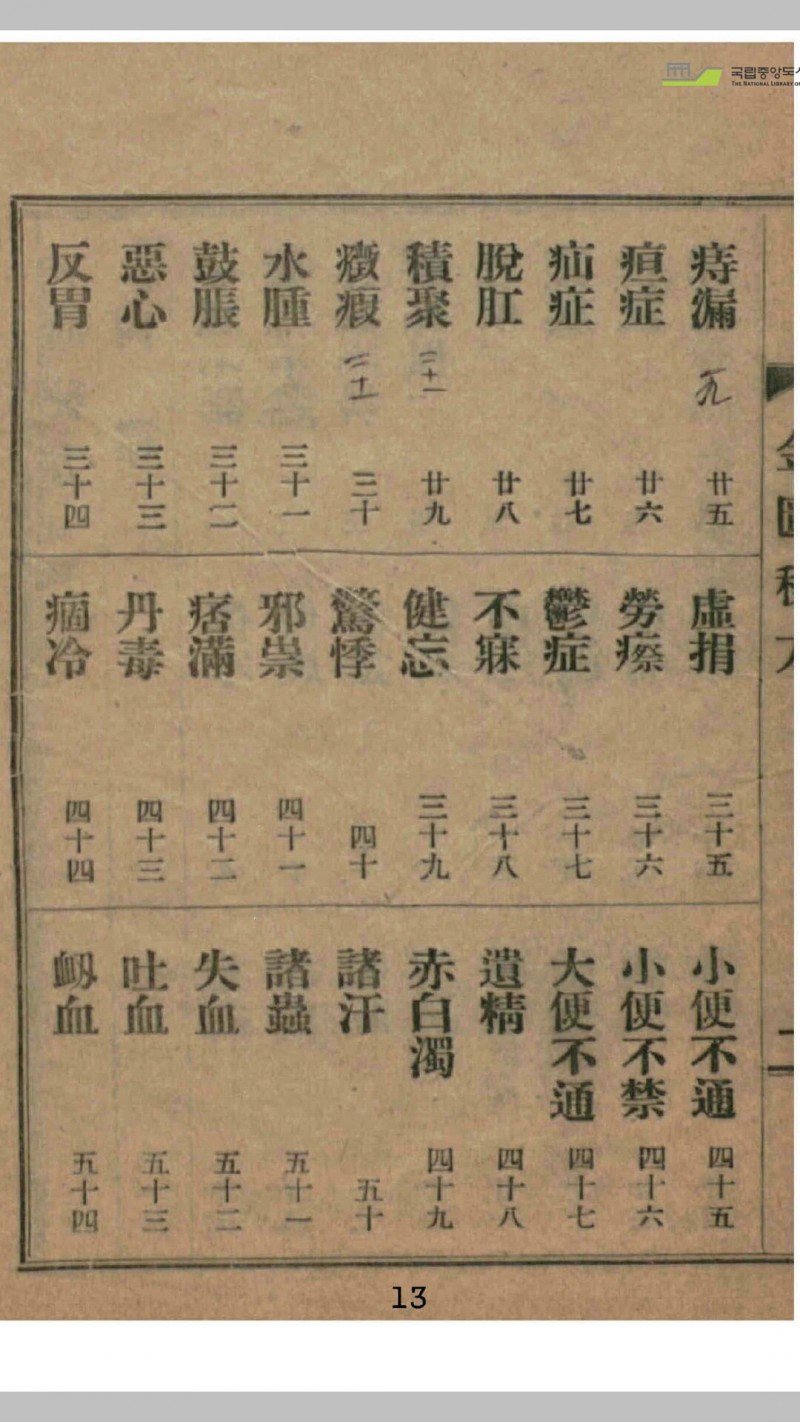 국립중앙도
THE NATIONAL LIBRARY O
痔漏 廿五
疸症 廿六
疝症 廿七
脫肛 廿八
積聚 二十一 廿九
癥瘕 三十
水腫 三十一
鼓脹 三十二
惡心 三十三
反胃 三十四
虛捐 三十五
勞瘵 三十六
鬱症 三十七
不寐 三十八
健忘 三十九
驚悸 四十
邪祟 四十一
痞滿 四十二
丹毒 四十三
痼冷 四十四
小便不通 四十五
小便不禁 四十六
大便不通 四十七
遺精 四十八
赤白濁 四十九
諸汗 五十
諸蟲 五十一
失血 五十二
吐血 五十三
衂血 五十四
13